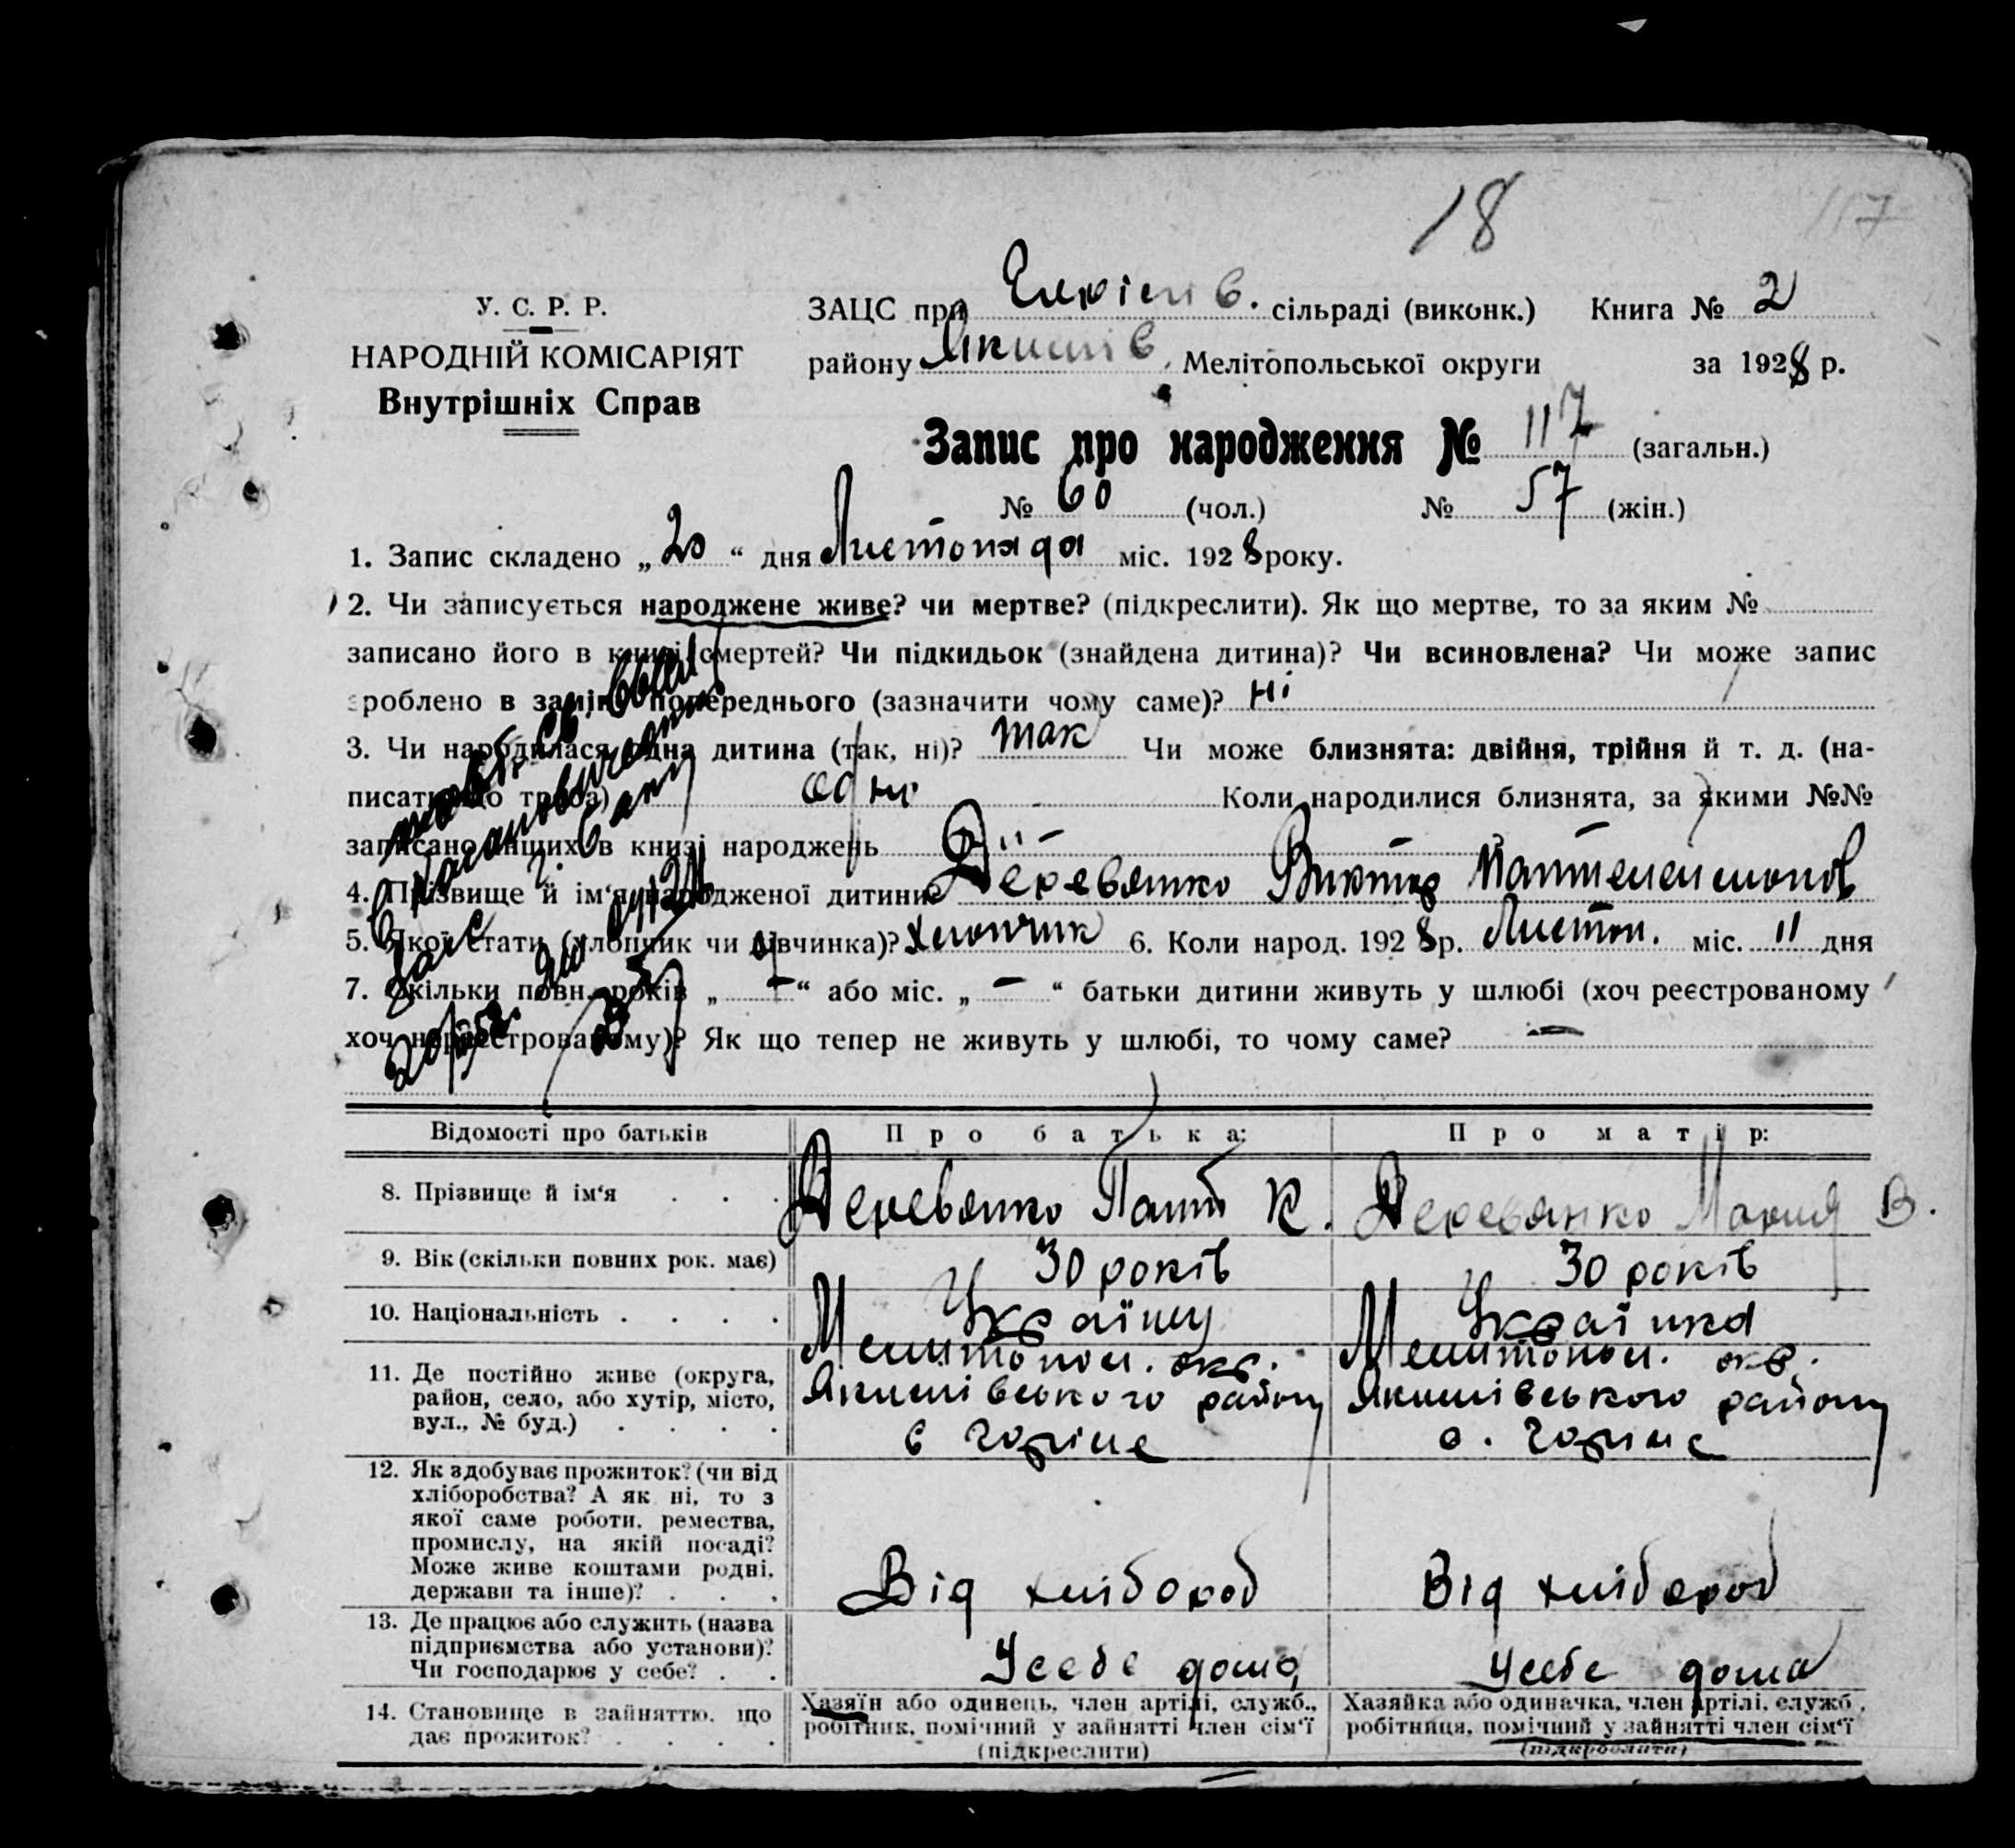 18
117
У. С. Р. Р.
НАРОДНІЙ КОМІСАРІЯТ
Внутрішніх Справ
ЗАЦС при сільраді (виконк.) Книга № 2
району Якимів. Мелітопольської округи за 1928 р.
Запис про народження № 117 (загальн.)
№ 60 (чол.) № 57 (жін.)
1. Запис складено „20“ дня Листопада міс. 1928 року.
2. Чи записується народжене живе? чи мертве? (підкреслити). Як що мертве, то за яким №
записано його в книзі смертей? Чи підкидьок (знайдена дитина)? Чи всиновлена? Чи може запис
зроблено в заміну попереднього (зазначити чому саме)? ні
3. Чи народилася одна дитина (так, ні)? так Чи може близнята: двійня, трійня й т. д. (на-
писати що треба) Коли народилися близнята, за якими №№
записано інших в книзі народжень
4. Прізвище й ім‘я народженої дитини Деревянко Виктор
5. Якої стати (хлопчик чи дівчинка)? хлопчик 6. Коли народ. 1928 р. Листоп. міс. 11 дня
7. Скільки повн. років „ – “ або міс. „ – “ батьки дитини живуть у шлюбі (хоч реєстрованому
хоч нереєстрованому)? Як що тепер не живуть у шлюбі, то чому саме? —
Відомості про батьків Про батька: Про матір:
8. Прізвище й ім‘я . . . Деревянко Пант К. Деревянко Мария В.
9. Вік (скільки повних рок. має) 30 років 30 років
10. Національність . . . . Українц Українка
11. Де постійно живе (округа,
район, село, або хутір, місто,
вул., № буд.) . . . .
Мелитопол. окр.
Якимівського району
Мелитопол. окр.
Якимівського району
12. Як здобуває прожиток? (чи від
хліборобства? А як ні, то з
якої саме роботи, ремества,
промислу, на якій посаді?
Може живе коштами родні,
держави та інше)? . . .
Від хлібороб
Від хлібороб
13. Де працює або служить (назва
підприємства або установи)?
Чи господарює у себе? . .
Усебе дома
Усебе дома
14. Становище в зайняттю, що
дає прожиток? . . . .
Хазяїн або одинець, член артілі, служб.,
робітник, помічний у зайнятті член сім‘ї
(підкреслити)
Хазяйка або одиначка, член артілі, служб.,
робітниця, помічний у зайнятті член сім‘ї
(підкреслити)